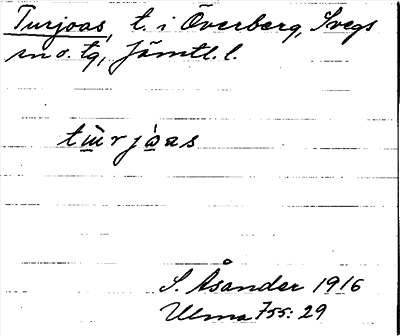 Turjoas, t. i Överberg, Svegs
sn o. tg, Jämtl. l.
tùrjòas
S. Åsander 1916
Ulma 755: 29